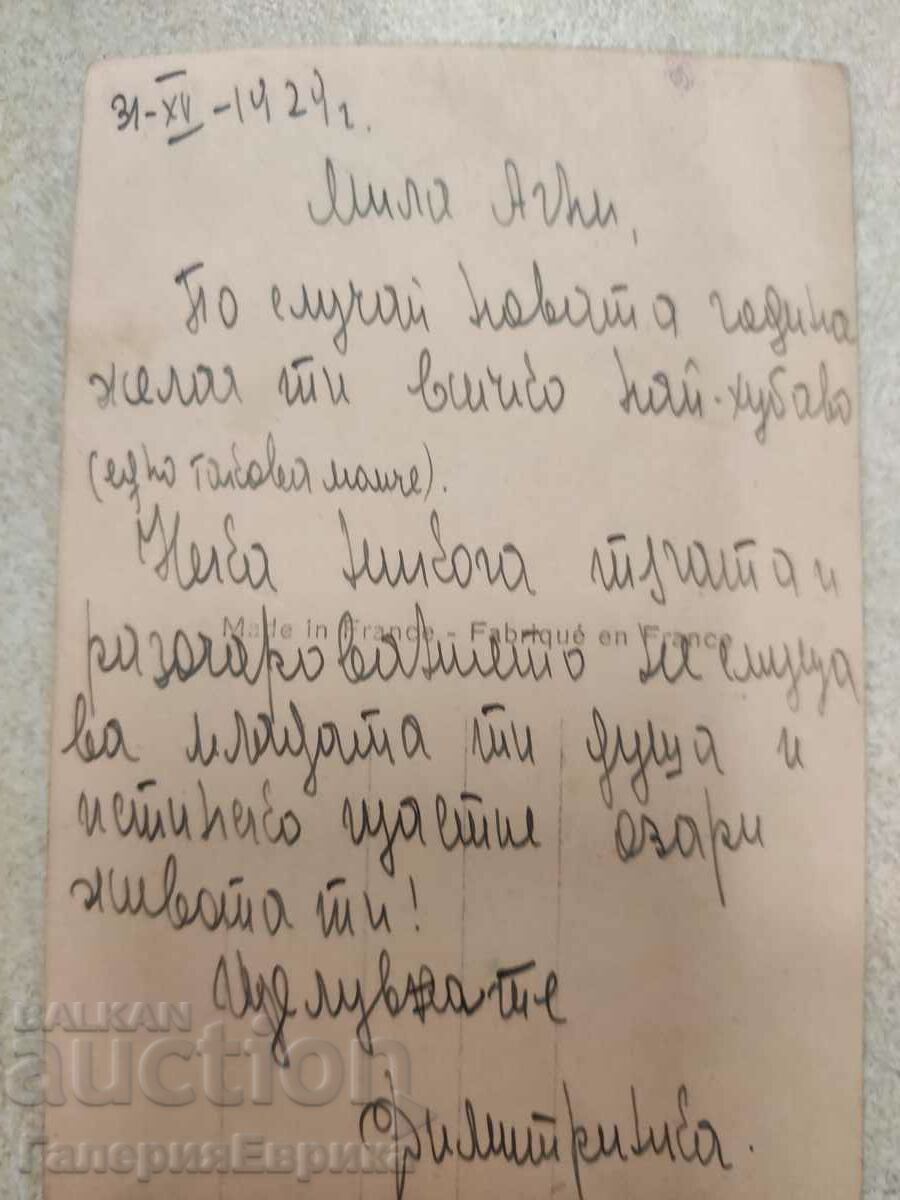 31-XII-1929 г.
Мила Ани,
По случай новата година
желая ти всичко най-хубаво
(едно такова момче).
Нека никога тъгата и
Made in France - Fabriqué en France
разочарованието не смуща
ва младата ти душа и
истинско щастие озари
живота ти!
Целувната те
Димитринка.
BALKAN
auction
ГалерияЕврика